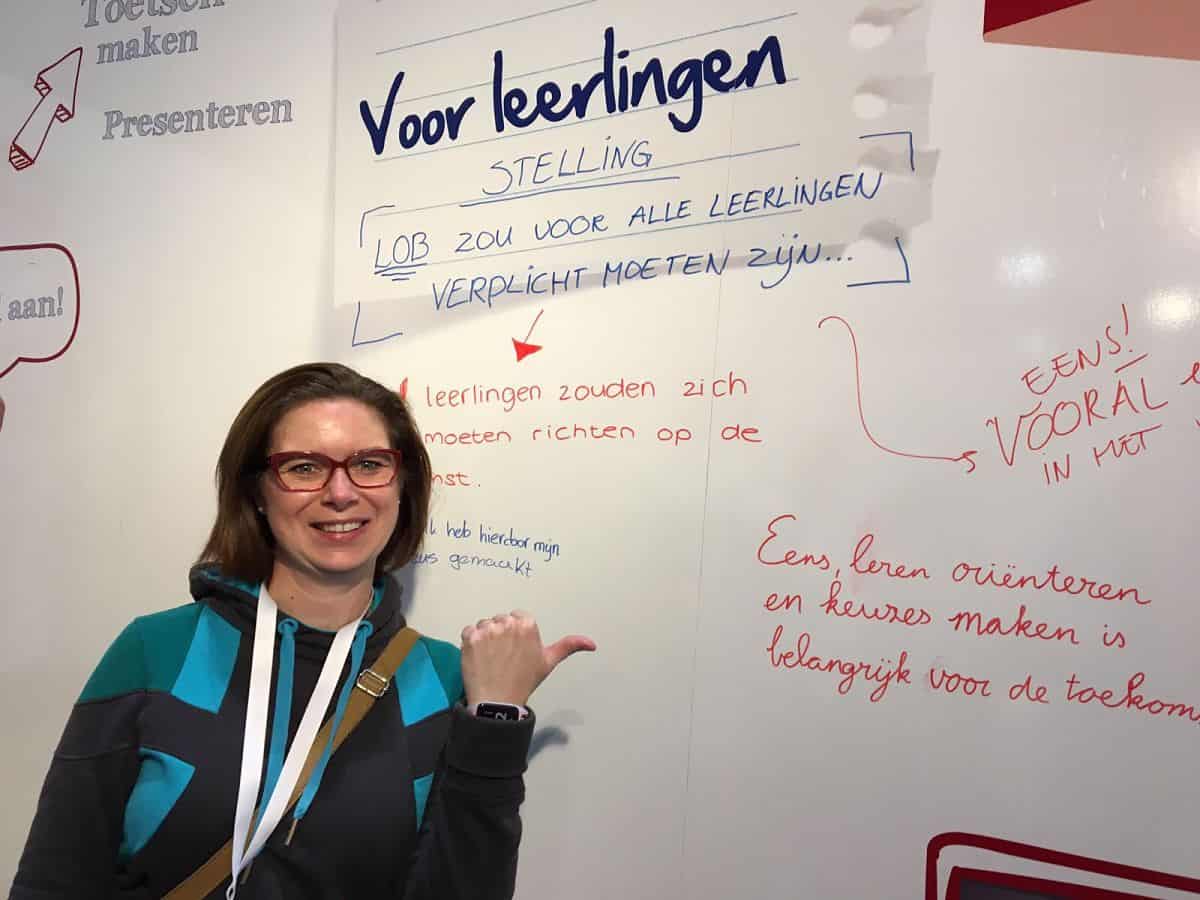 Toetsen
maken
Presenteren
aan!
Voor leerlingen
STELLING
LOB ZOU VOOR ALLE LEERLINGEN
VERPLICHT MOETEN ZIJN...
leerlingen zouden zich
moeten richten op de
nst.
ik heb hierdoor mijn
gemaakt
EENS!
VOORAL
IN HET
Eens, leren oriënteren
en keuzes maken is
belangrijk voor de toekom